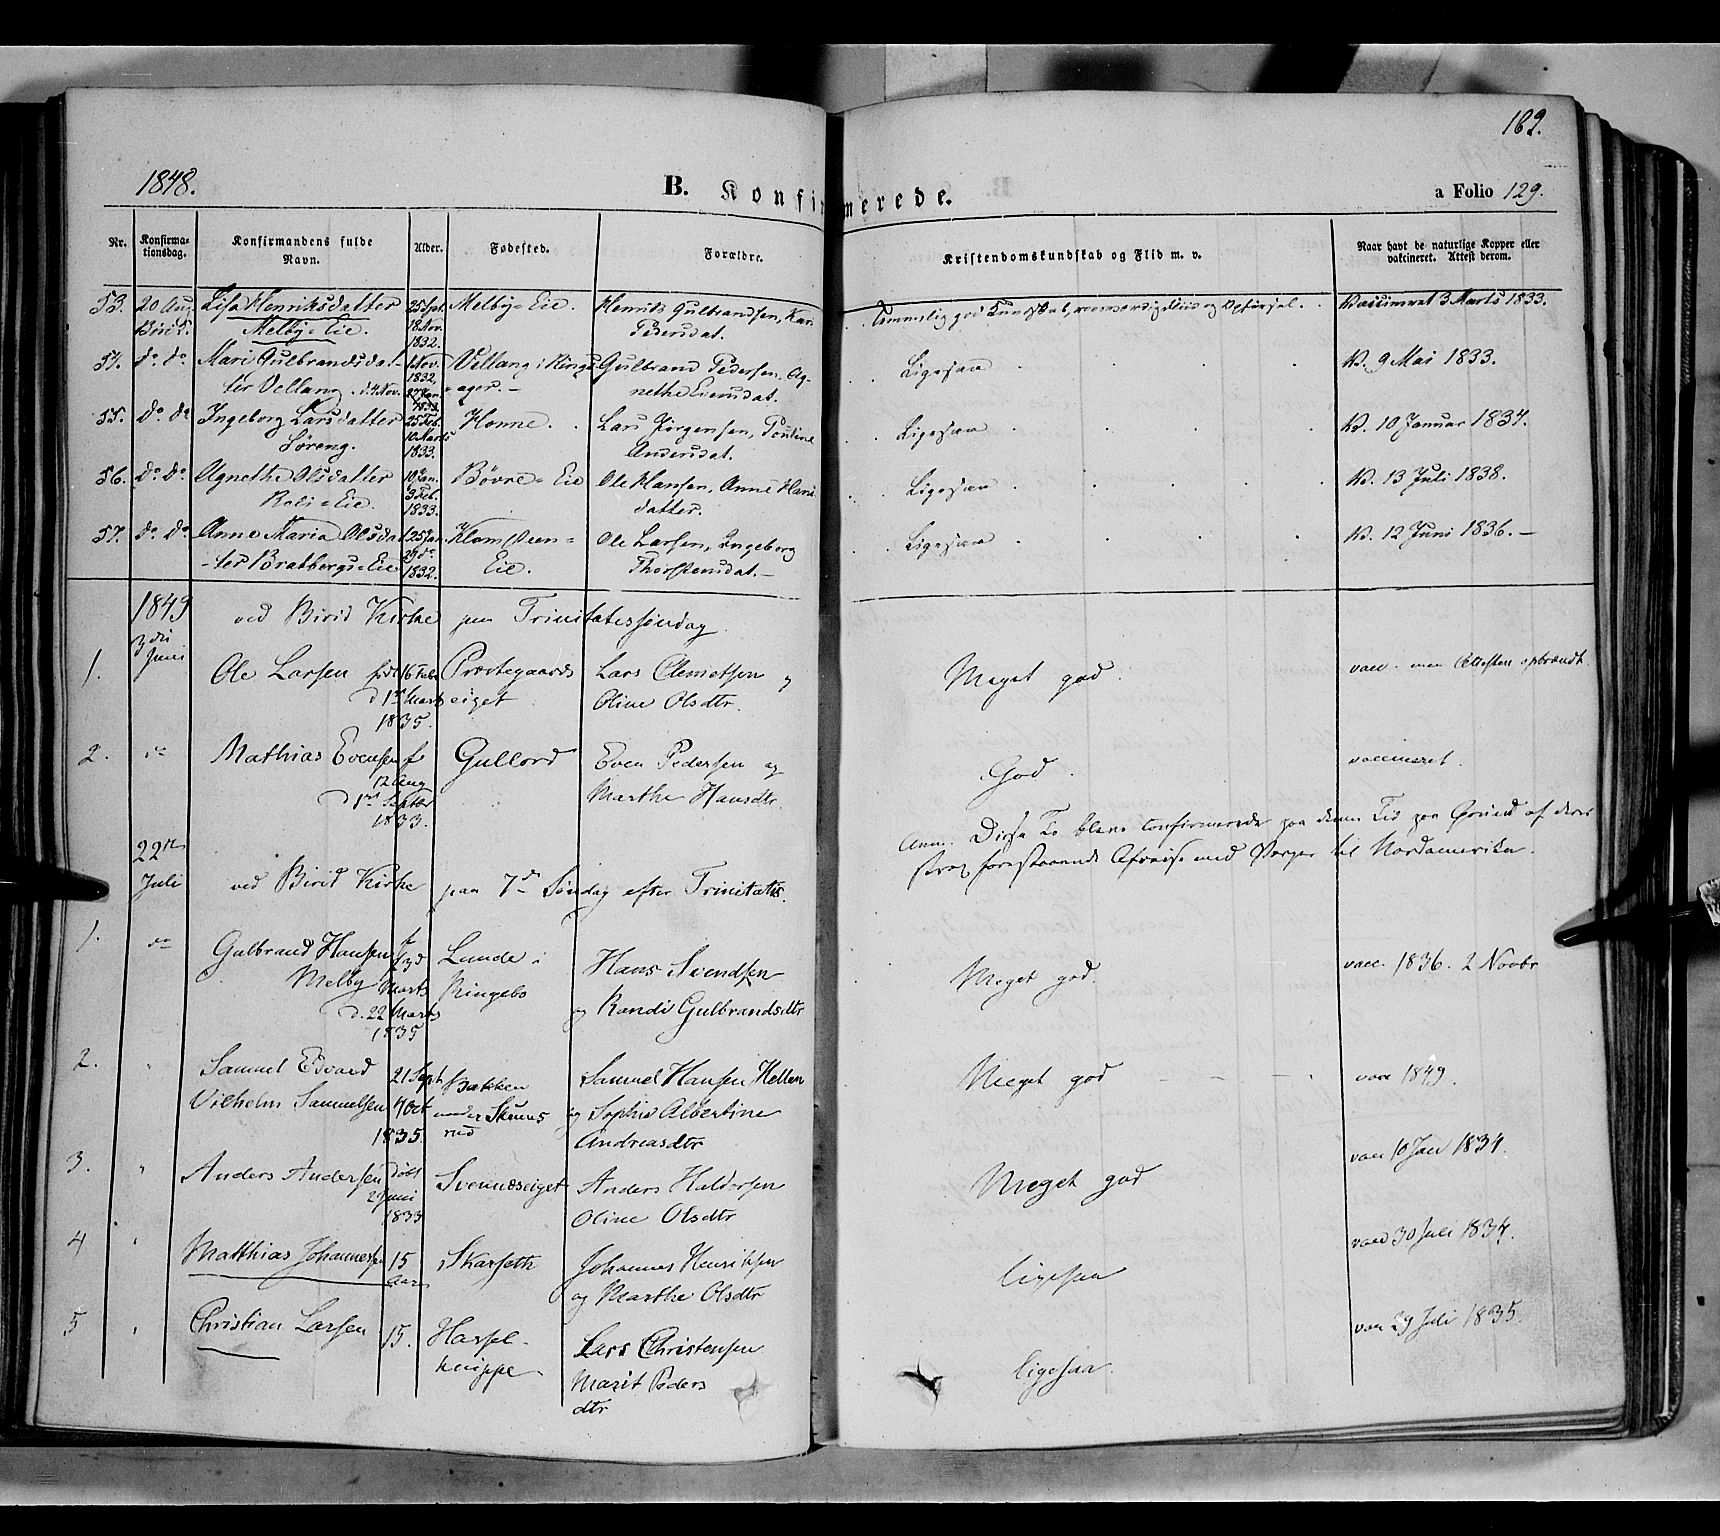 182.
1848.
B. Konfirmerede.
a Folio 129.
Nr.
Konfirma-
tionsdag.
Konfirmandens fulde
Navn.
Alder.
Fødested.
Forældre.
Kristendomskundskab og Flid m. v.
Naar havt de naturlige Kopper eller
vakcineret. Attest derom.
53. 20 Aug Lisa Henriksdatter 25 Sept. Melby-Eie. Henrik Gulbrandsen, Kari Temmelig god Kundskab, Flid og Opførsel. Vaccineret 3 Marts 1833.
Birid. Melby-Eie. 18 Nov. Pedersdat.
1832.
54. do do Mari Gulbrandsdat- 1 Nov. Vellang i Rings- Gulbrand Pedersen, Ag- Ligesaa V. 9 Mai 1833.
ter Vellang 1832, ager.- nethe Eversdat.
27 Jan. 1833
55. do do Ingeborg Larsdatter 25 Feb. Honne. Lars Jørgensen, Pouline Ligesaa V. 10 Januar 1834.
Søreng. 10 Marts Andersdat.
1833.
56. do do Agnethe Olsdatter 10 Jan. Bøvre-Eie Ole Hansen, Anne Hans- Ligesaa V. 13 Juli 1838.
Roli-Eie. 3 Feb. datter.
1833.
57. do do Anne Maria Olsdat- 25 Jan Klomsteen- Ole Larsen, Ingeborg Ligesaa V. 12 Juni 1836.-
ter Bratbergs-Eie 29 do Eie. Thorstensdat.-
1832.
1849 ved Birid Kirke paa Trinitatissøndag
3die
Juni
1. Ole Larsen født 16 Febr Præstegaards Lars Clemetsen og Meget god. vacc. men Attesten opbrændt
d 1ste Marts eiget Oline Olsdtr.
1835.
2. do Mathias Evensen f Gullord Even Pedersen og God. vaccineret.
12 Aug Marthe Hansdtr.
d 1ste Septbr
1833.
Anm. Disse To bleve confirmerede paa denne Tid paa Grund af deres
strax forestaaende Afreise med Værger til Nordamerika.
22de
Juli ved Birid Kirke paa 7de Søndag efter Trinitatis.
1. do Gulbrand Hansen f Lunde i Hans Svendsen Meget god. vacc. 1836. 2 Novbr
Melby Marts Ringebo og Randi Gulbrandsdtr
d. 22 Marts
1835
2. " Samuel Edvard 21 Sept Bakken Samuel Hansen Hellen Meget god vacc 1849.
Vilhelm Samuelsen 4 Oct under Skuns og Sophie Albertine
1835. rud Andreasdtr
3. " Anders Andersen Døbt Svennæseiget Anders Haldorsen Meget god vacc 10 Jan 1834.
2 Juni Oline Olsdtr
1833
4 " Matthias Johannessen 15 Skarseth Johannes Henriksen ligesaa vacc 30 Juli 1834.
aar og Marthe Olsdtr
5 " Christian Larsen 15. Hassel- Lars Christensen ligesaa. vacc 29 Juli 1835.
knippe Marit Peders
dtr